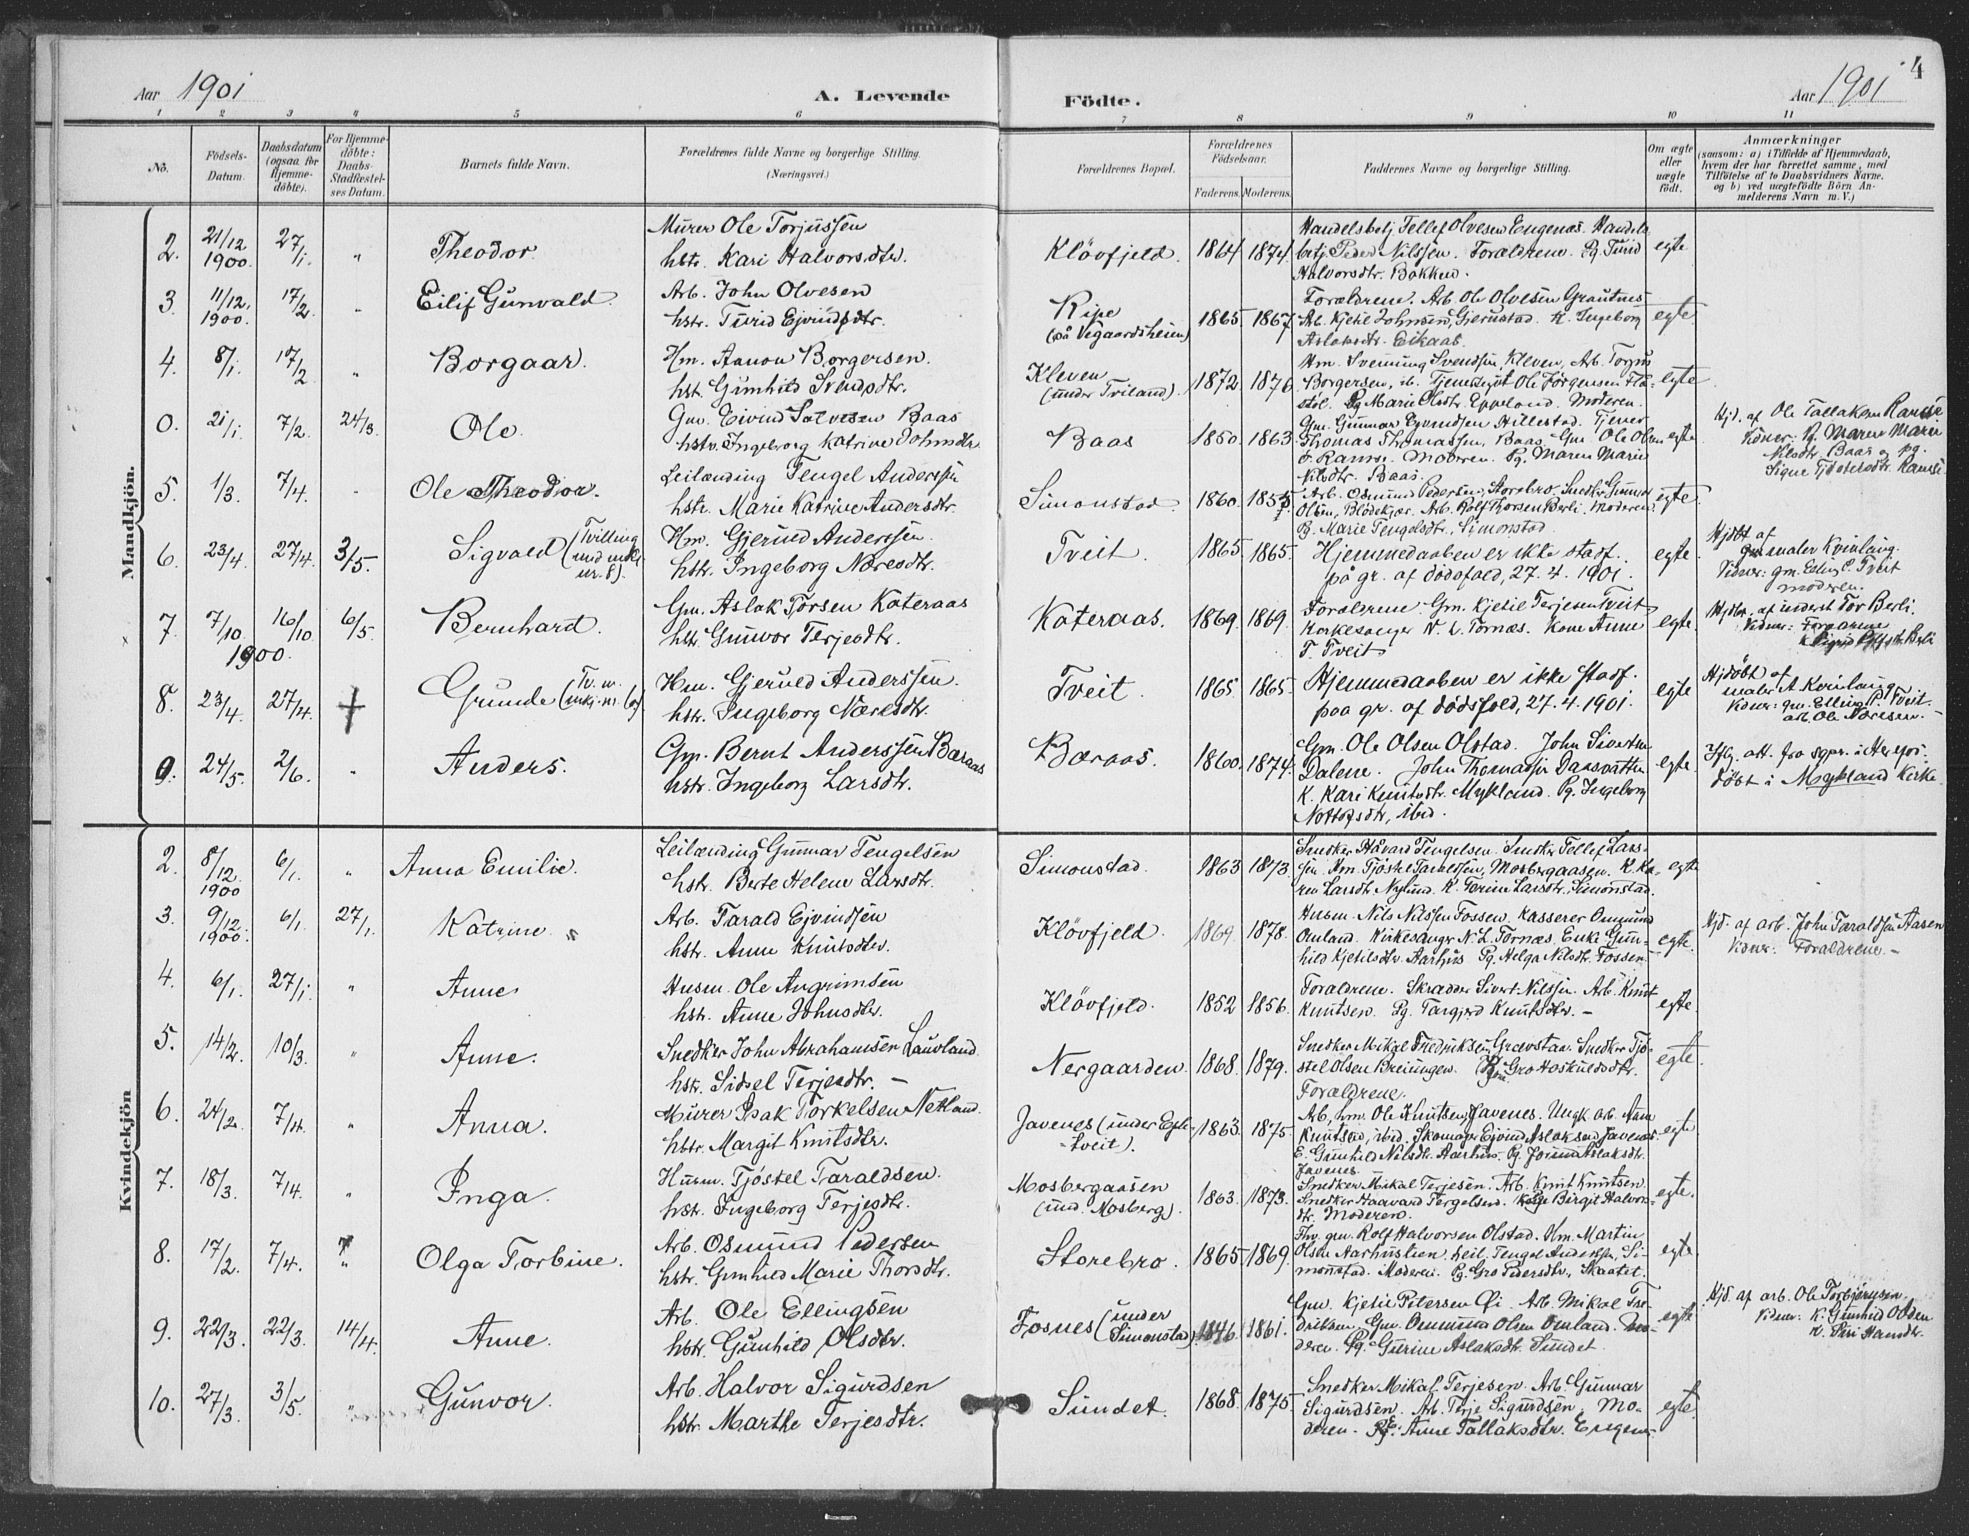 Aar 1901
A. Levende
Födte.
Aar 1901
4
1 2 3 4 5 6 7 8 9 10 11
No.
Födsels-Datum.
Daabsdatum (ogsaa for Hjemmedöbte).
For Hjemmedöbte: Daabs-Stadfæstelses Datum.
Barnets fulde Navn.
Forældrenes fulde Navne og borgerlige Stilling.
(Næringsvei.)
Forældrenes Bopæl.
Forældrenes Födselsaar.
Faderens. Moderens.
Faddernes Navne og borgerlige Stilling.
Om ægte eller uægte födt.
Anmærkninger
(saasom: a) i Tilfælde af Hjemmedaab,
hvem der har forrettet samme, med
Tilföielse af to Daabsvidners Navne.
og b) ved uægtefödte Börn An-
melderens Navn m. V.)
Mandkjön.
2. 21/12 1900. 27/1. " Theodor. Murer Ole Torjussen
hstr. Kari Halvorsdtr. Klövfjeld. 1864 1874. egte
Handelsbetj. Tellef Olvesen Engenæs. Handels
betj. Peder Nilssen. Forældrene. Pg. Turid
Halvorsdtr. Bakken.
3. 11/12 1900. 17/2. " Eilif Gunvald. Arb. John Olvesen
hstr. Turid Ejvindsdtr. Ripe (på Vegaardsheien) 1865. 1867. egte
Forældrene. Arb. Ole Olvesen Grautnes
Arb. Kjetil Johnsen, Gjerustad. K. Ingeborg
Aslaksdtr. Eikaas.
4. 8/1. 17/2 " Borgaar. Hm. Aanon Borgersen.
hst. Gunhild Svendsdtr. Kleven (under Tviland). 1872 1876. egte
Hm. Svenning Svendsen, Kleven, Arb. Torjus
Borgersen, ib. Tjenedreng Ole Jörgensen Flaa-
stöl. Pg Marie Olsdtr. Eppeland. Moderen.
0. 21/1. 7/2. 24/3. Ole. Gm. Eivind Salvesen Baas
hstr. Ingeborg Katrine Johnsdtr. Baas 1850. 1863. egte
Gm. Gunnar Eyvindsen Hillestad. Tjener
Thomas Thomassen, Baas. Gm Ole Olsen
Ramse. Moderen. Pg. Maren Marie
Nilsdtr. Baas.
Hjd. af Ole Tallaksen Ramse
Vidner: Pg. Maren Marie
Nilsdtr. Baas og pg.
Signe Tjöstelsdtr. Ramse.
5. 1/3. 7/4. " Ole Theodor. Leilænding Tengel Anderssen
hstr. Marie Katrine Andersdtr. Simonstad. 1860. 1855. egte.
Arb. Osmund Pedersen, Storebro. Snedker Gunnar
Olsen, Blödekjær. Arb. Rolf Thorsen Berli. Moderen.
Pg. Marie Tengelsdtr. Simonstad.
6. 23/4. 27/4. 3/5. Sigvald (Tvilling
med mkl.
nr. 8). Hm. Gjeruld Anderssen.
hstr. Ingeborg Næresdtr. Tveit. 1865 1865. egte
Hjemmedaaben er ikke stadf.
på gr. af dödsfald, 27.4.1901.
Hjdbt af
maler Kvinlaug.
Vidner: gm. Elling P. Tveit
moderen.
7. 7/10 1900. 16/10. 6/5. Bernhard. Gm. Aslak Torsen Kateraas
hstr. Gunvor Terjesdtr. Kateraas. 1869. 1869. egte.
Forældrene. Gm. Kjetil Terjesen Tveit
Kirkesanger N. L. Tornæs. Kone Anne
T. Tveit.
Hjdbt. af inderst Tor Berli.
Vidner: Forældrene
8. 23/4. 27/4. + Grunde (Tv. m.
mkj. nr. 6) Hm. Gjeruld Anderssen.
hstr. Ingeborg Næresdtr. Tveit. 1865 1865. egte
Hjemmedaaben er ikke stadf.
paa gr. af dödsfald, 27.4.1901.
Hjdöbt af
maler A Kvinlaug
Vidner: gm. Elling P. Tveit.
arb. Ole Næresen.
9. 24/5. 2/6. " Anders. Gm. Bernt Anderssen Bæraas
hstr. Ingeborg Larsdtr. Bæraas. 1860. 1874. egte.
Gm. Ole Olsen Olstad. John Sivertsen
Dalene. John Thomassen Daasvatten
K. Kari Knutsdtr. Mykland. Pg. Ingeborg
Nottosdtr, ibid.
Iflg. att. fra sgpr. i Herefos.
döbt i Mykland Kirke
Kvindekjön
2. 8/12 1900 6/1. " Anna Emilie. Leilænding Gunnar Tengelsen
hstr. Berte Helene Larsdtr. Simonstad. 1863 1873. egte
Snedker Håvard Tengelsen. Snedker Tellef Lars-
sen. Hm. Tjöstel Taraldsen, Mosbergaasen. K. Ka-
ren Larsdtr Nylund. K. Terine Larsdtr, Simonstad.
3. 9/12 1900. 6/1. 27/1. Katrine. Arb. Tarald Ejvindsen
hstr. Anne Knutsdtr. Klövfjeld. 1869. 1878. egte.
Husm. Nils Nilssen Fossen. Kasserer Omund
Omland. Kirkesanger N. L. Tornæs. Enke Gun-
hild Kjetilsdtr. Aarhus. Pg. Helga Nilsdtr. Fossen.
Hjd. af arb. John Taraldsen Aasen
Vidner: Forældrene. —
4. 6/1. 27/1. " Anne Husm. Ole Angrimsen
hstr. Anne Johnsdtr. Klövfjeld. 1852 1856. egte.
Forældrene. Skrædder Sivert Nilssen. Arb. Knut
Knutsen. Pg. Targjerd Knutsdtr. —
5. 14/2. 10/3. " Anne. Snedker John Abrahamsen Lauvland.
hstr. Sidsel Terjesdtr. — Nergaarden 1868. 1879. egte.
Snedker Mikal Fredriksen Grævstaa. Snedker Tjö-
stel Olsen Breiungen. Gro Hoskuldsdtr.
Forældrene.
6. 24/2. 7/4. " Anna. Murer Isak Torkelsen Netland.
hstr. Margit Knutsdtr. Javenes (under Egde-
tveit). 1863. 1875. egte.
Arb, hm. Ole Knutsen, Javenes. Ungk. arb. Aan
Knutsen, ibid. Skomager Ejvind Aslaksen Javenes.
E. Gunhild Nilsdtr. Aarhus. Pg. Jorunn Aslaksdtr.
Javenes.
7. 18/3. 7/4. " Inga. Husm. Tjöstel Taraldsen.
hstr. Ingeborg Terjesdtr. Mosbergaasen
(und. Mosberg). 1863. 1873. egte.
Snedker Mikal Terjesen. Arb. Knut Knutsen.
Snedker Haavard Tengelsen. Birgit Halvors-
dtr. Moderen.
8. 17/2. 7/4. " Olga Torbine. Arb. Osmund Pedersen
hstr. Gunhild Marie Thorsdtr. Storebro. 1865. 1869. egte.
Fhv. gm. Rolf Halvorsen Olstad. Hm. Martin
Olsen Aarhuslien, Leil. Tengel Anderssen, Si-
monstad. Moderen. Pg. Gro Pedersdtr. Skaatet.
9. 22/3. 22/3. 14/4. Anne. Arb. Ole Ellingsen
hstr. Gunhild Olsdtr. Fosnes (under
Simonstad). 1846. 1861. egte
Gm. Kjetil Petersen Öi. Arb. Mikal Fre-
driksen. Gm. Ommund Olsen Omland. Mo-
deren. Pg. Gurine Aslaksdtr. Sundet.
Hjd. af arb. Ole Torbjörnsen.
Vidner: K. Gunhild Olsden
K. Siri Hansdtr.
10. 27/3. 3/5. " Gunvor. Arb. Halvor Sigurdsen
hstr. Marthe Terjesdtr. Sundet. 1868. 1875. egte.
Snedker Mikal Terjesen. Arb. Gunnar
Sigurdsen. Arb. Terje Sigurdsen. Mo-
deren. Anne Tallaksdtr. Engenes.